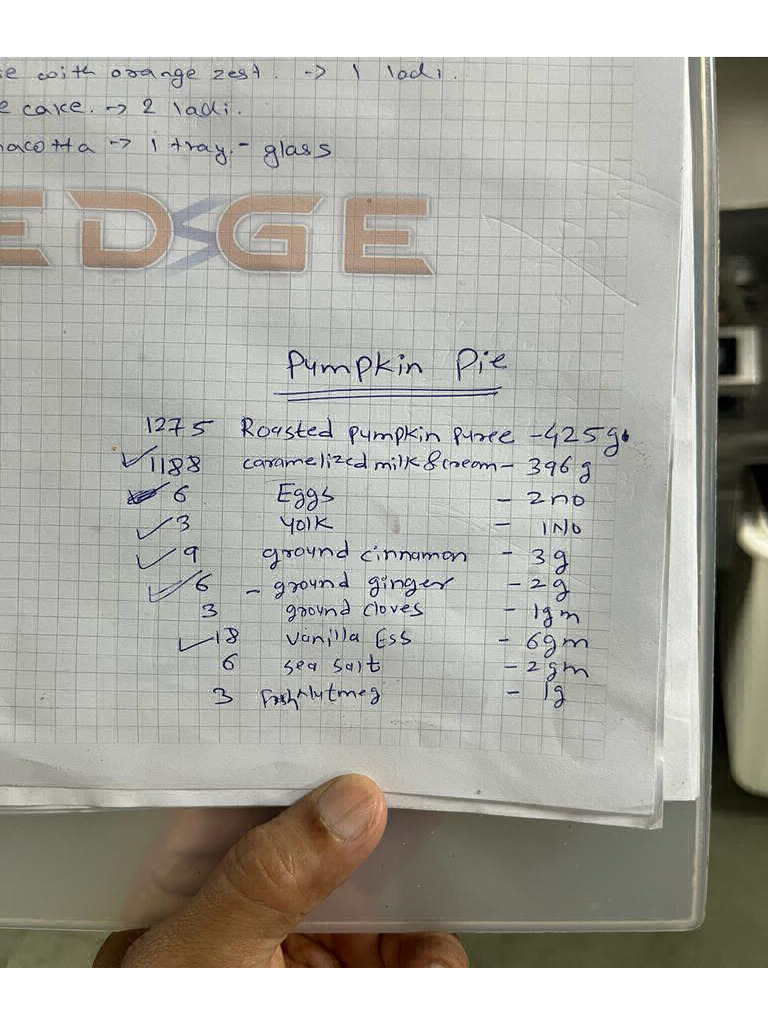 with orange zest. -> 1 ladi.
cake. -> 2 ladi.
-> 1 tray. - glass
EDGE
Pumpkin Pie
1275 Roasted pumpkin puree - 425g.
✓1188 caramelized milk & cream - 396g
6 Eggs - 2no
✓3 Yolk - 1No
✓9 ground cinnamon - 3g
✓6 - ground ginger - 2g
3 ground cloves - 1gm
✓18 vanilla Ess - 6gm
6 sea salt - 2gm
3 Fresh Nutmeg - 1g